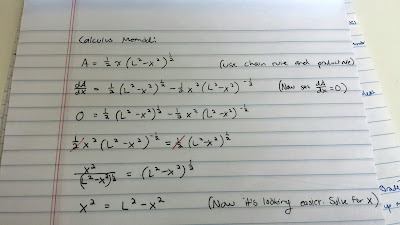 Calculus Method:
A = ½ x (L² - x²)^½ (use chain rule and product rule)
dA/dx = ½ (L² - x²)^½ - ½ x² (L² - x²)^-½ (Now set dA/dx = 0)
0 = ½ (L² - x²)^½ - ½ x² (L² - x²)^-½
½ x² (L² - x²)^-½ = ½ (L² - x²)^½
x²/(L² - x²)^½ = (L² - x²)^½
x² = L² - x² (Now it's looking easier. Solve for x)